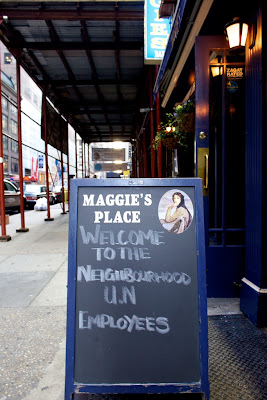 ZAGAT
RATED
MAGGIE'S
PLACE
WELCOME
TO THE
NEIGHBOURHOOD
U.N
EMPLOYEES